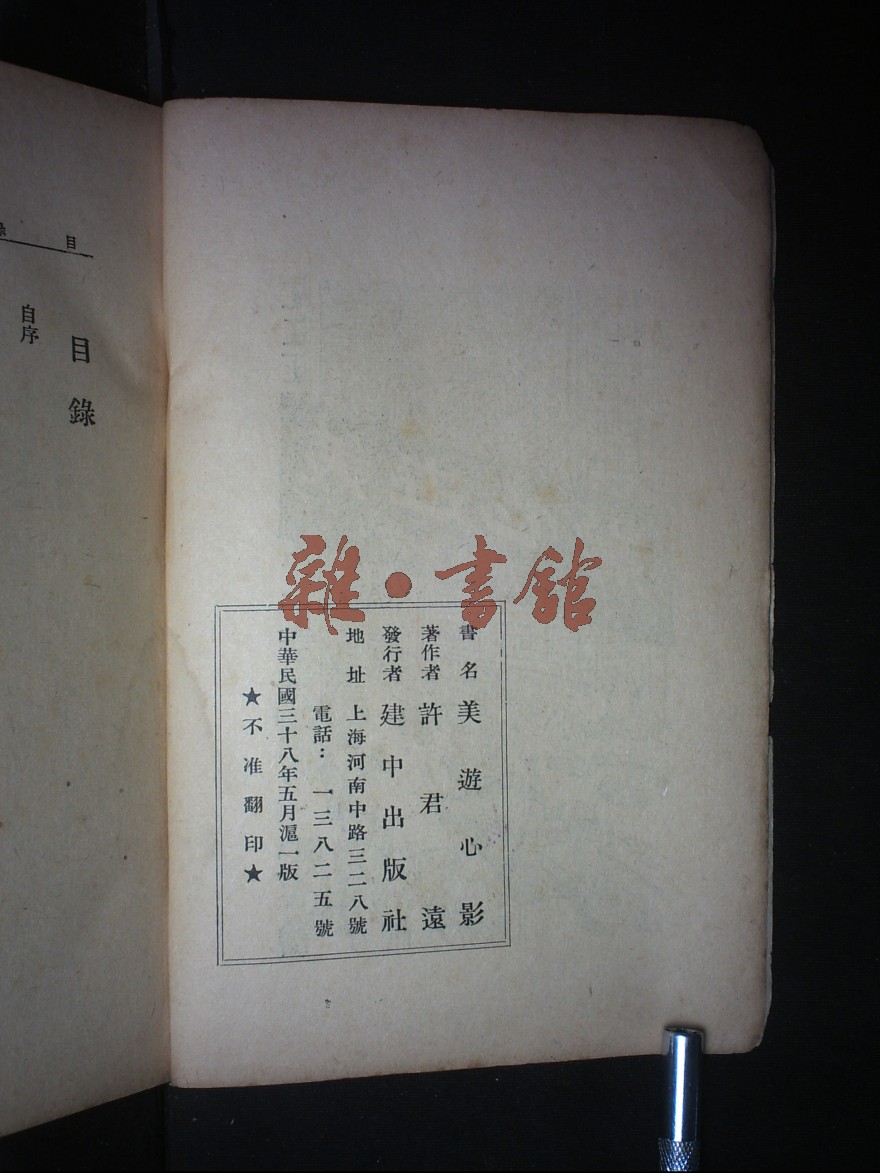 雜·書館
書名 美遊心影
著作者 許君遠
發行者 建中出版社
地址 上海河南中路三二八號
電話：一三八二五號
中華民國三十八年五月滬一版
★不准翻印★
目錄
目錄
自序